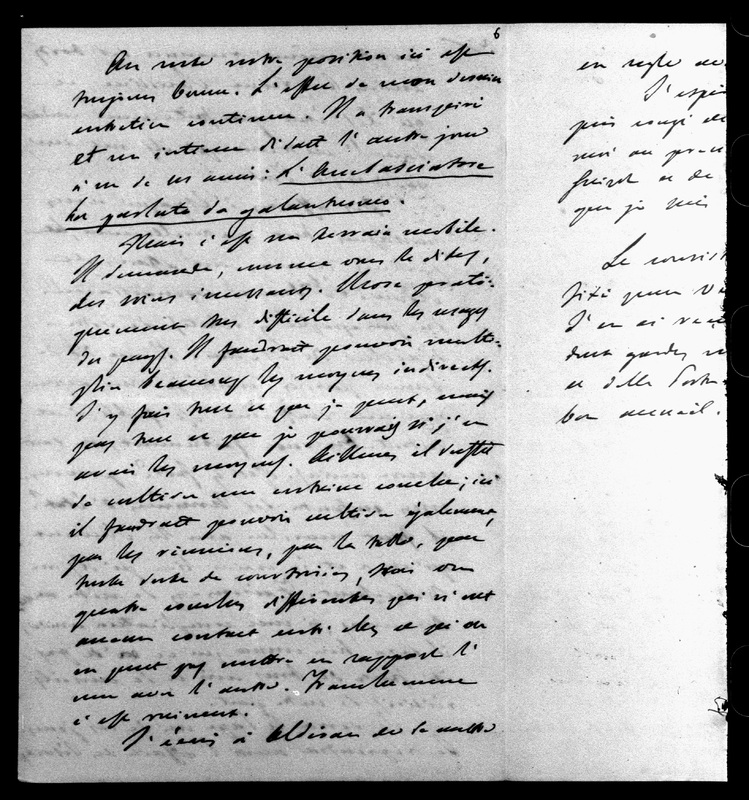 6
Au reste notre position ici est
toujours bonne. L'effet de mon dernier
entretien continue. Il a transpiré
et un intime disait l'autre jour
à un de ses amis: L'Ambasciatore
ha parlato da galantuomo.
Mais c'est un terrain mobile.
Il demande, comme vous le dites,
des soins incessants. Chose prati-
quement très difficile dans les usages
du pays. Il faudrait pouvoir multi-
plier beaucoup les moyens indirects.
J'y fais tout ce que je peux, mais
pas tout ce que je pourrais si j'en
avais les moyens. Ailleurs il suffit
de cultiver une certaine couche; ici
il faudrait pouvoir cultiver également,
par les réunions, par la table, par
toute sorte de courtoisies, trois ou
quatre couches différentes qui n'ont
aucun contact entr'elles et qu'on
ne peut pas mettre en rapport l'
une avec l'autre. Franchement
c'est ruineux.
J'écris à de le mettre
en règle
J'espè
puis congé
moi au
Guizot et de
que je
Le consist
fixé pour
J'en ai
deux gardes
et della
bon accueil.